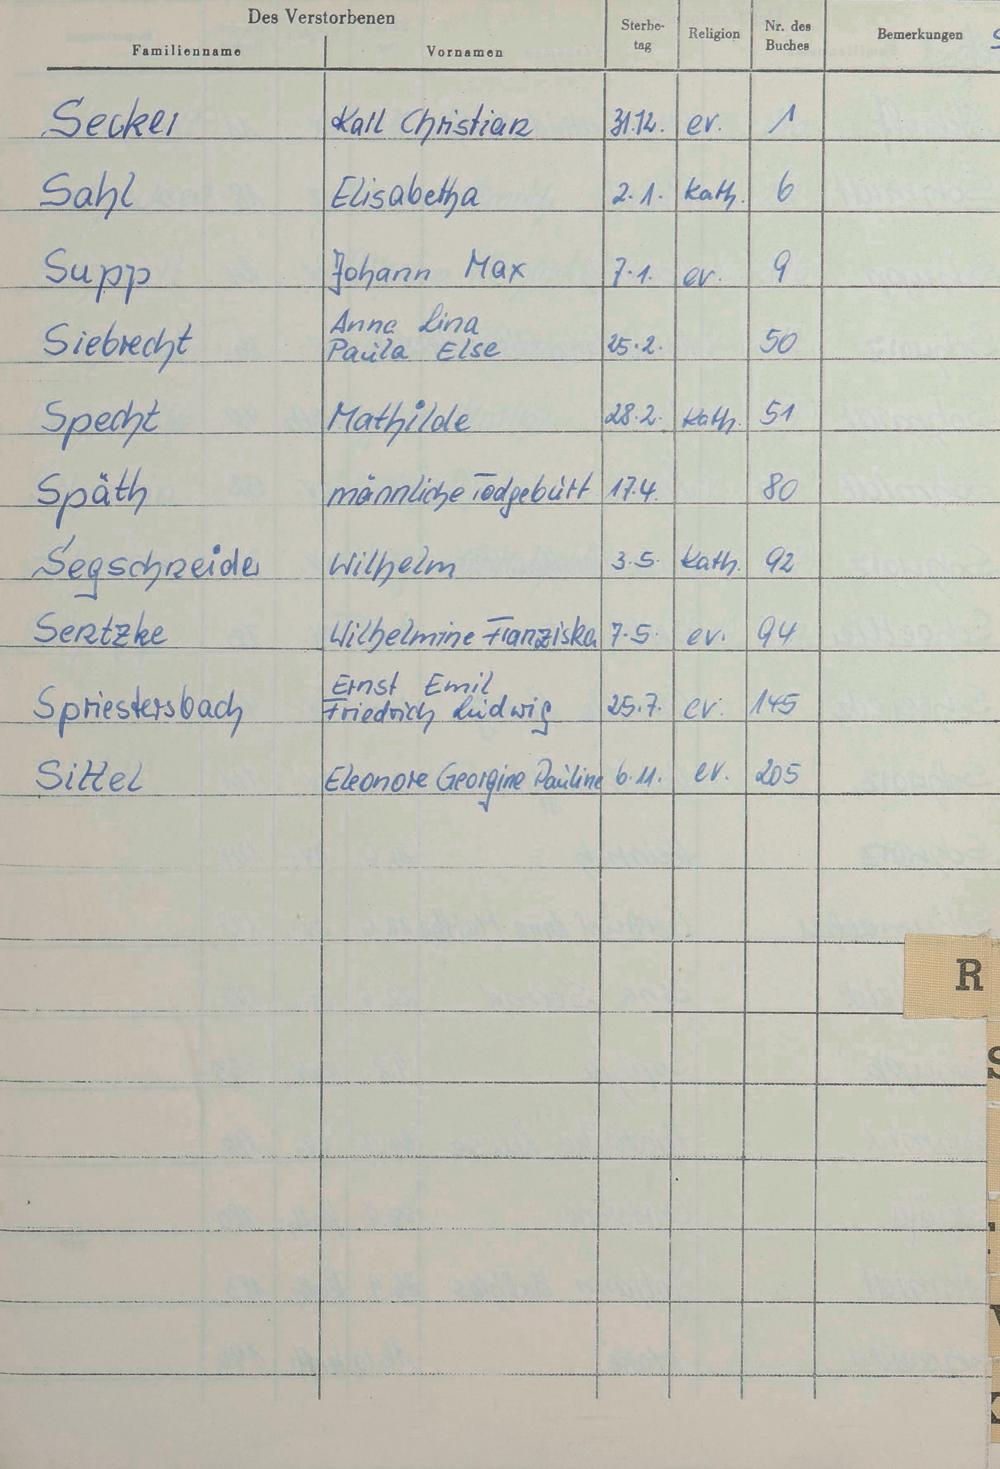 Des Verstorbenen
Familienname Vornamen Sterbe-tag Religion Nr. des Buches Bemerkungen
Secker Karl Christian 31.12. ev. 1
Sahl Elisabetha 2.1. Kath. 6
Supp Johann Max 7.1. ev. 9
Anna Lina
Siebrecht Paula Else 25.2. 50
Specht Mathilde 28.2. Kath. 51
Späth männliche Todgeburt 17.4. 80
Segschneider Wilhelm 3.5. Kath. 92
Sentzke Wilhelmine Franziska 7.5. ev. 94
Ernst Emil
Spriestersbach Friedrich Ludwig 25.7. ev. 145
Sittel Eleonore Georgine Pauline 6.11. ev. 205
R
S